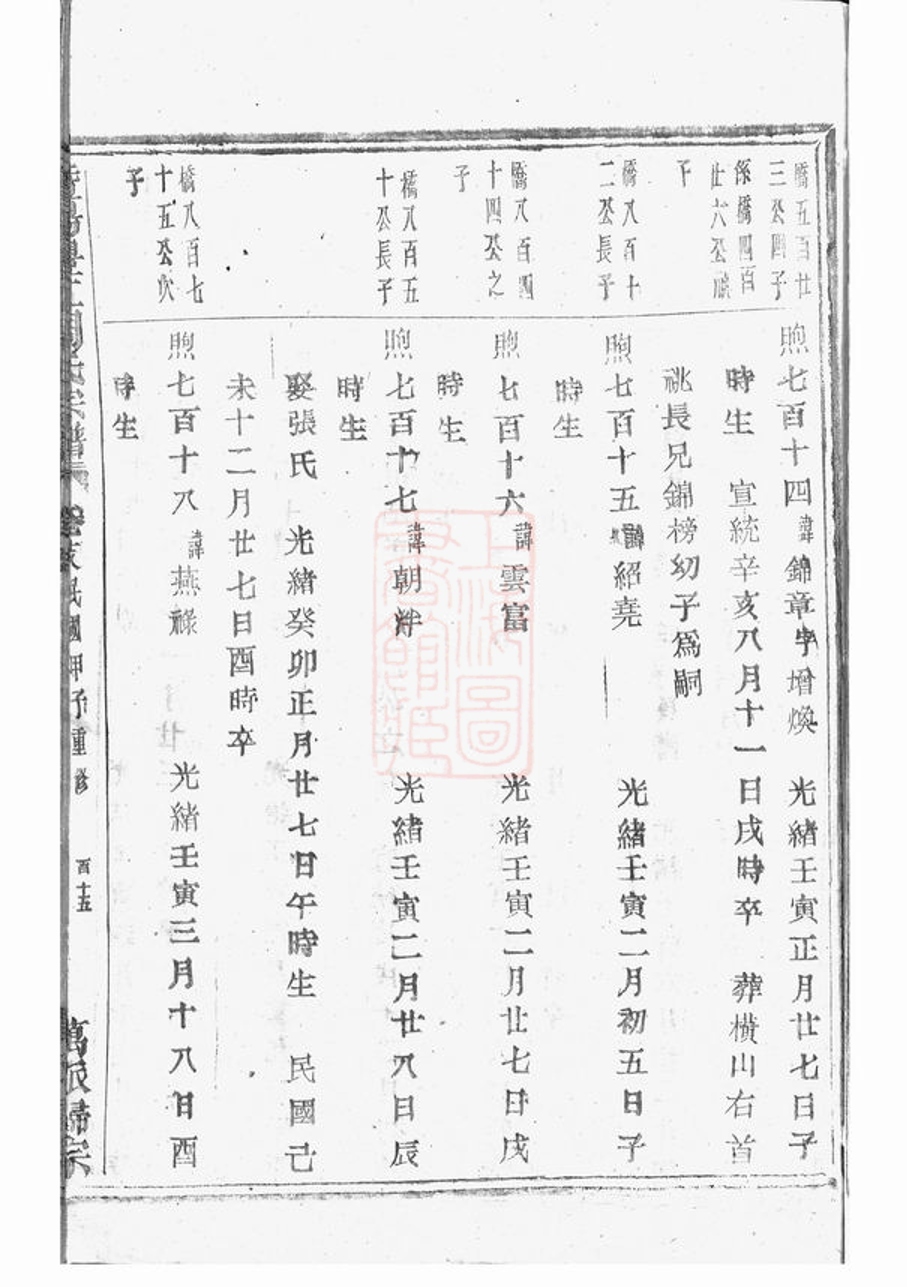 橋五百廿
三公四子
係橋四百
廿六公嗣
子
煦七百十四諱錦章字增煥 光緒壬寅正月廿七日子
時生 宣統辛亥八月十一日戌時卒 葬橫山右首
祧長兄錦榜幼子為嗣
橋八百十
二公長子
煦七百十五諱紹堯 光緒壬寅二月初五日子
時生
橋八百四
十四公之
子
煦七百十六諱雲富 光緒壬寅二月廿七日戌
時生
橋八百五
十公長子
煦七百十七諱朝泮 光緒壬寅二月廿八日辰
時生
娶張氏 光緒癸卯正月廿七日午時生 民國己
未十二月廿七日酉時卒
橋八百七
十五公次
子
煦七百十八諱燕祿 光緒壬寅三月十八日酉
時生
民國甲子重修
百十五
萬派歸宗
上海圖書館藏